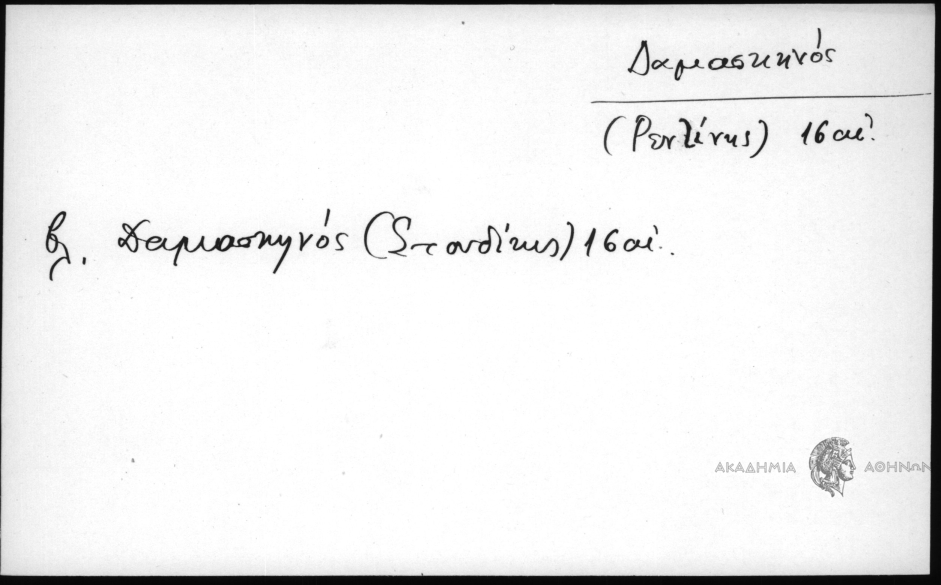 Δαμασκηνός
(Ρεντίνης) 16 αἰ.
βλ. Δαμασκηνός (Στουδίτης) 16 αἰ.
ΑΚΑΔΗΜΙΑ ΑΘΗΝΩΝ